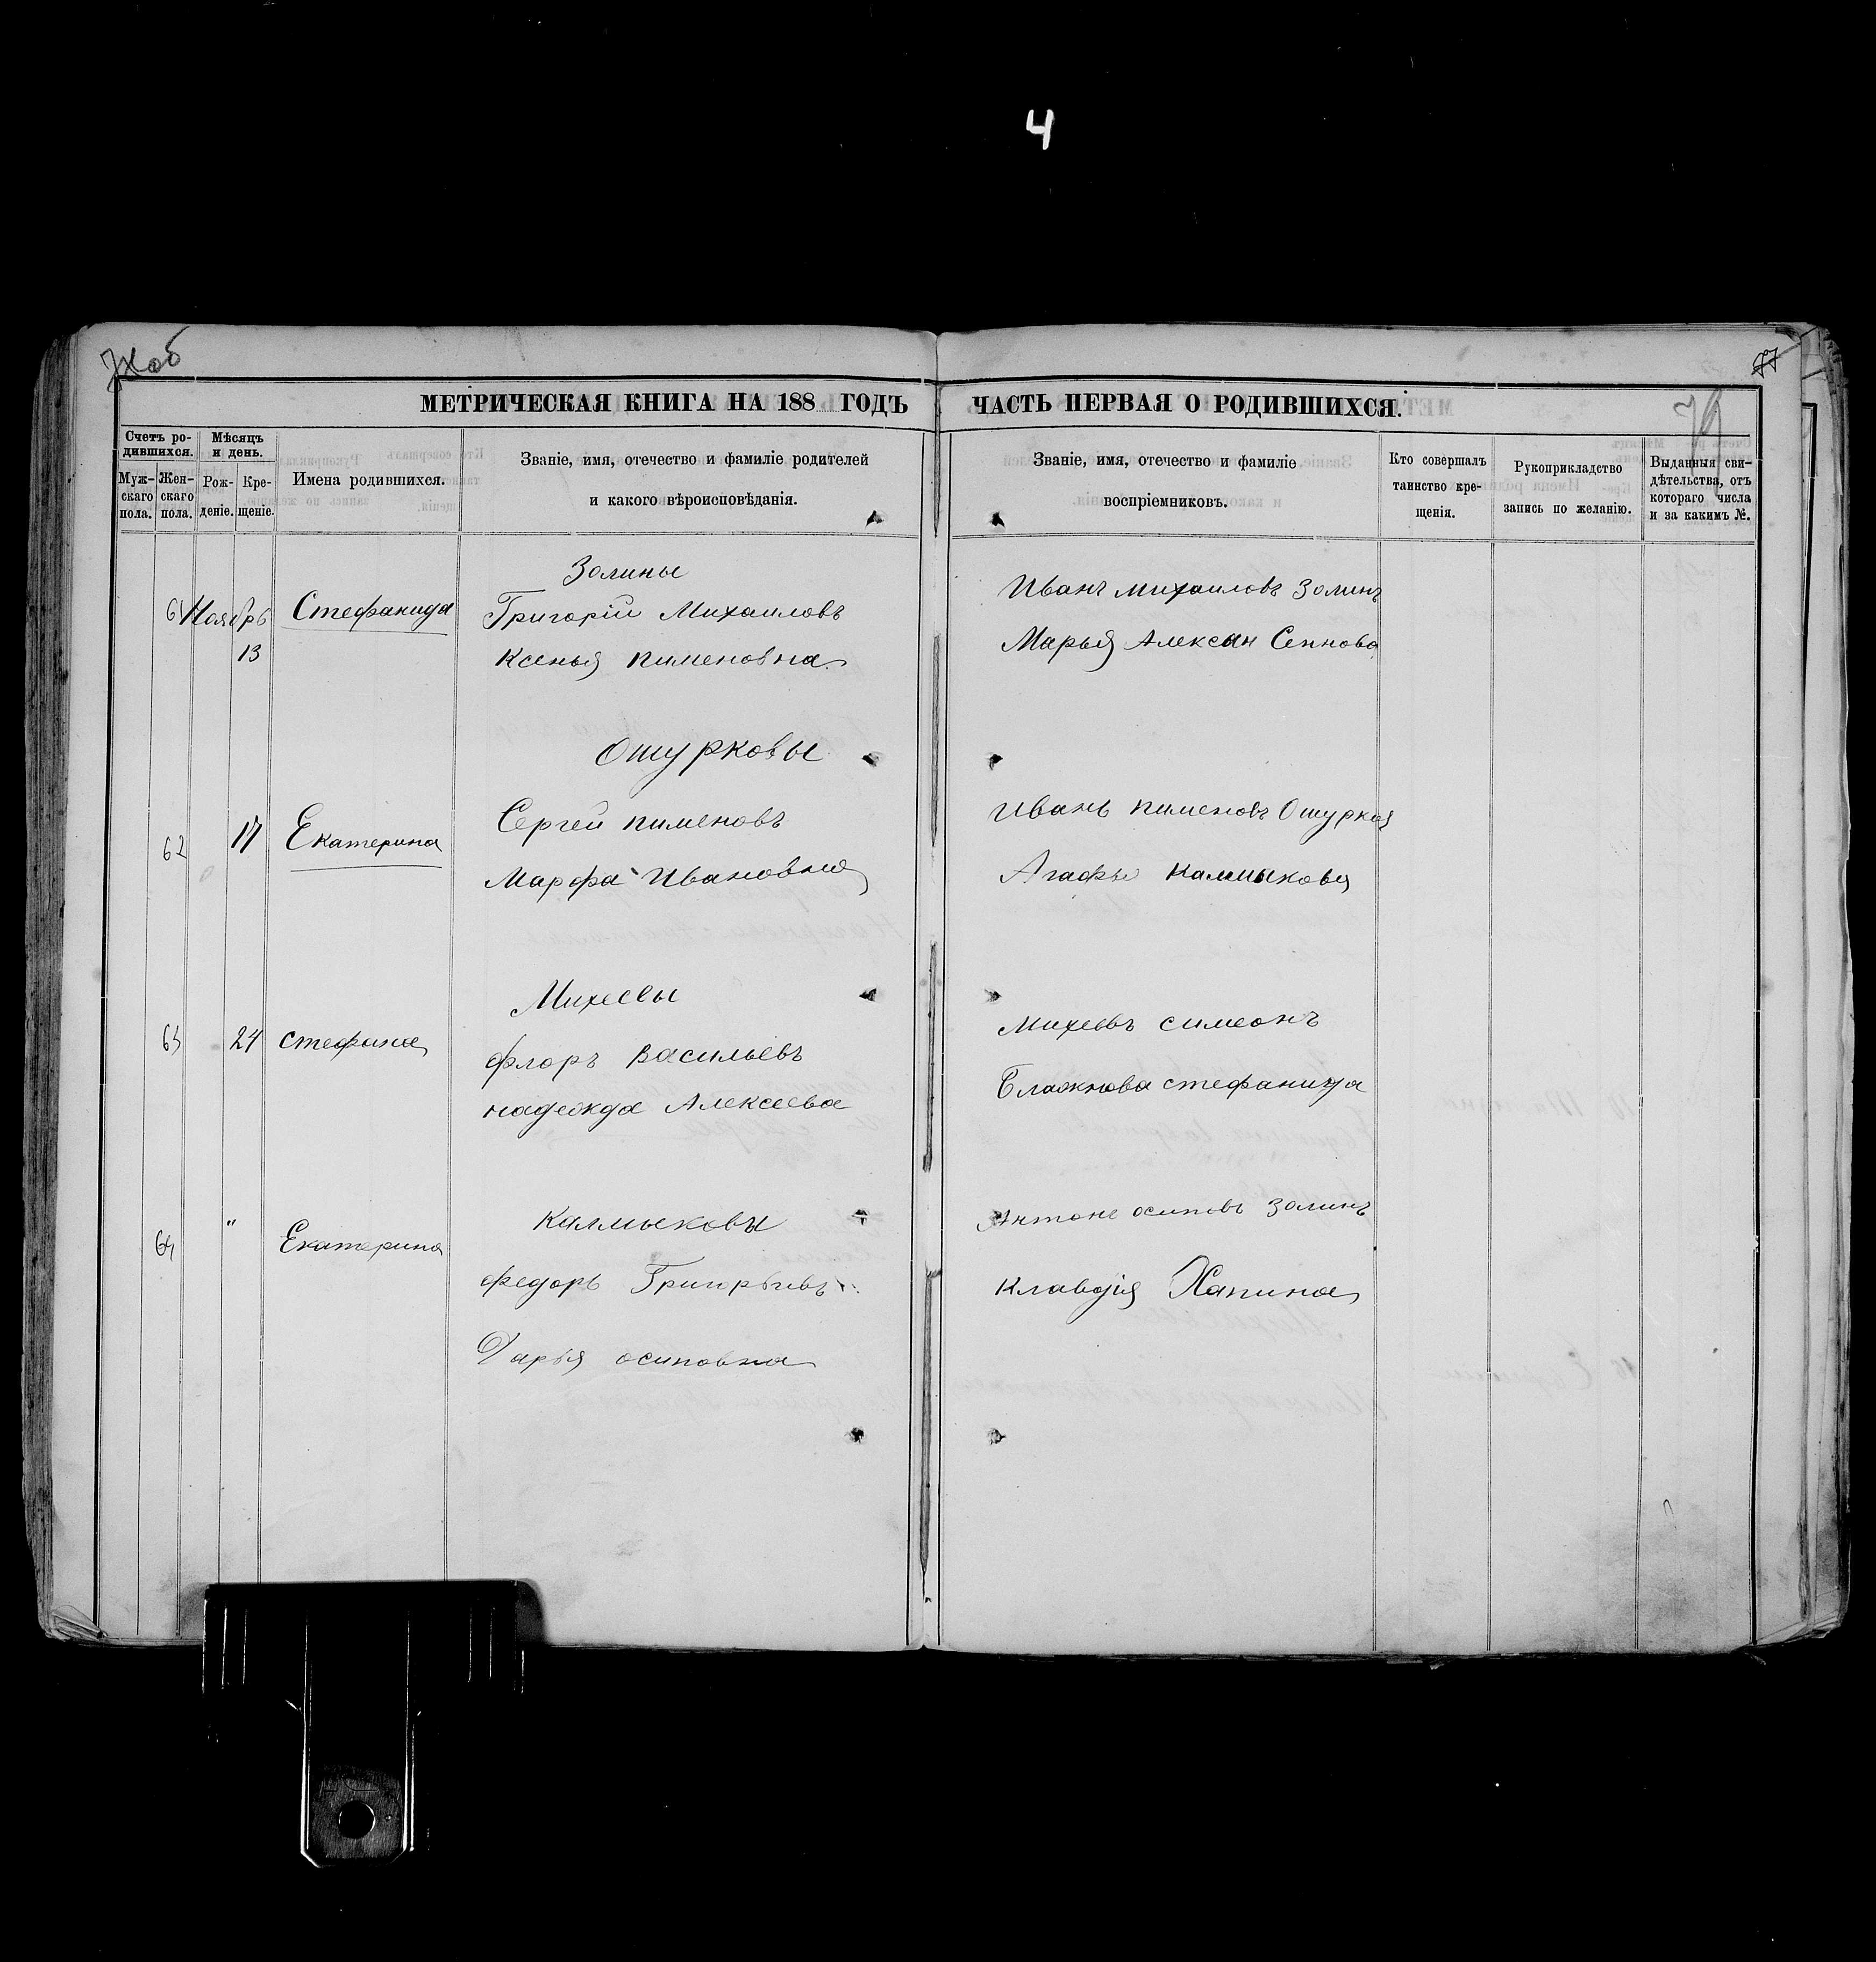 4
77
79
МЕТРИЧЕСКАЯ КНИГА НА 188 ГОДЪ
ЧАСТЬ ПЕРВАЯ О РОДИВШИХСЯ.
Счетъ ро-
дившихся.
Муж-
скаго
пола.
Жен-
скаго
пола.
Мѣсяцъ
и день.
Рож-
деніе.
Кре-
щеніе.
Имена родившихся.
Званіе, имя, отечество и фамиліе родителей
и какого вѣроисповѣданія.
Званіе, имя, отечество и фамиліе
воспріемниковъ.
Кто совершалъ
таинство кре-
щенія.
Рукоприкладство
запись по желанію.
Выданныя сви-
дѣтельства, отъ
котораго числа
и за какимъ №.
Золины
61 Ноябрь Стефанида Григорій Михаиловъ
13 Ксенья пименовна
Иванъ михаиловъ Золинъ
Марья Алексан
Ошурковы
62 17 Екатерина Сергей пименовъ
Марфа Ивановна
Иванъ пименовъ Ошурков
Агафья Калмыкова
Михеевы
63 24 стефанида флоръ Васильевъ
надежда Алексеева
Михеевъ симеонъ
Блажнова стефанида
64 " Екатерина Калмыковы
федоръ Григорьевъ
Дарья осиповна
Антоне осиповъ Золинъ
Клавдія Хапина